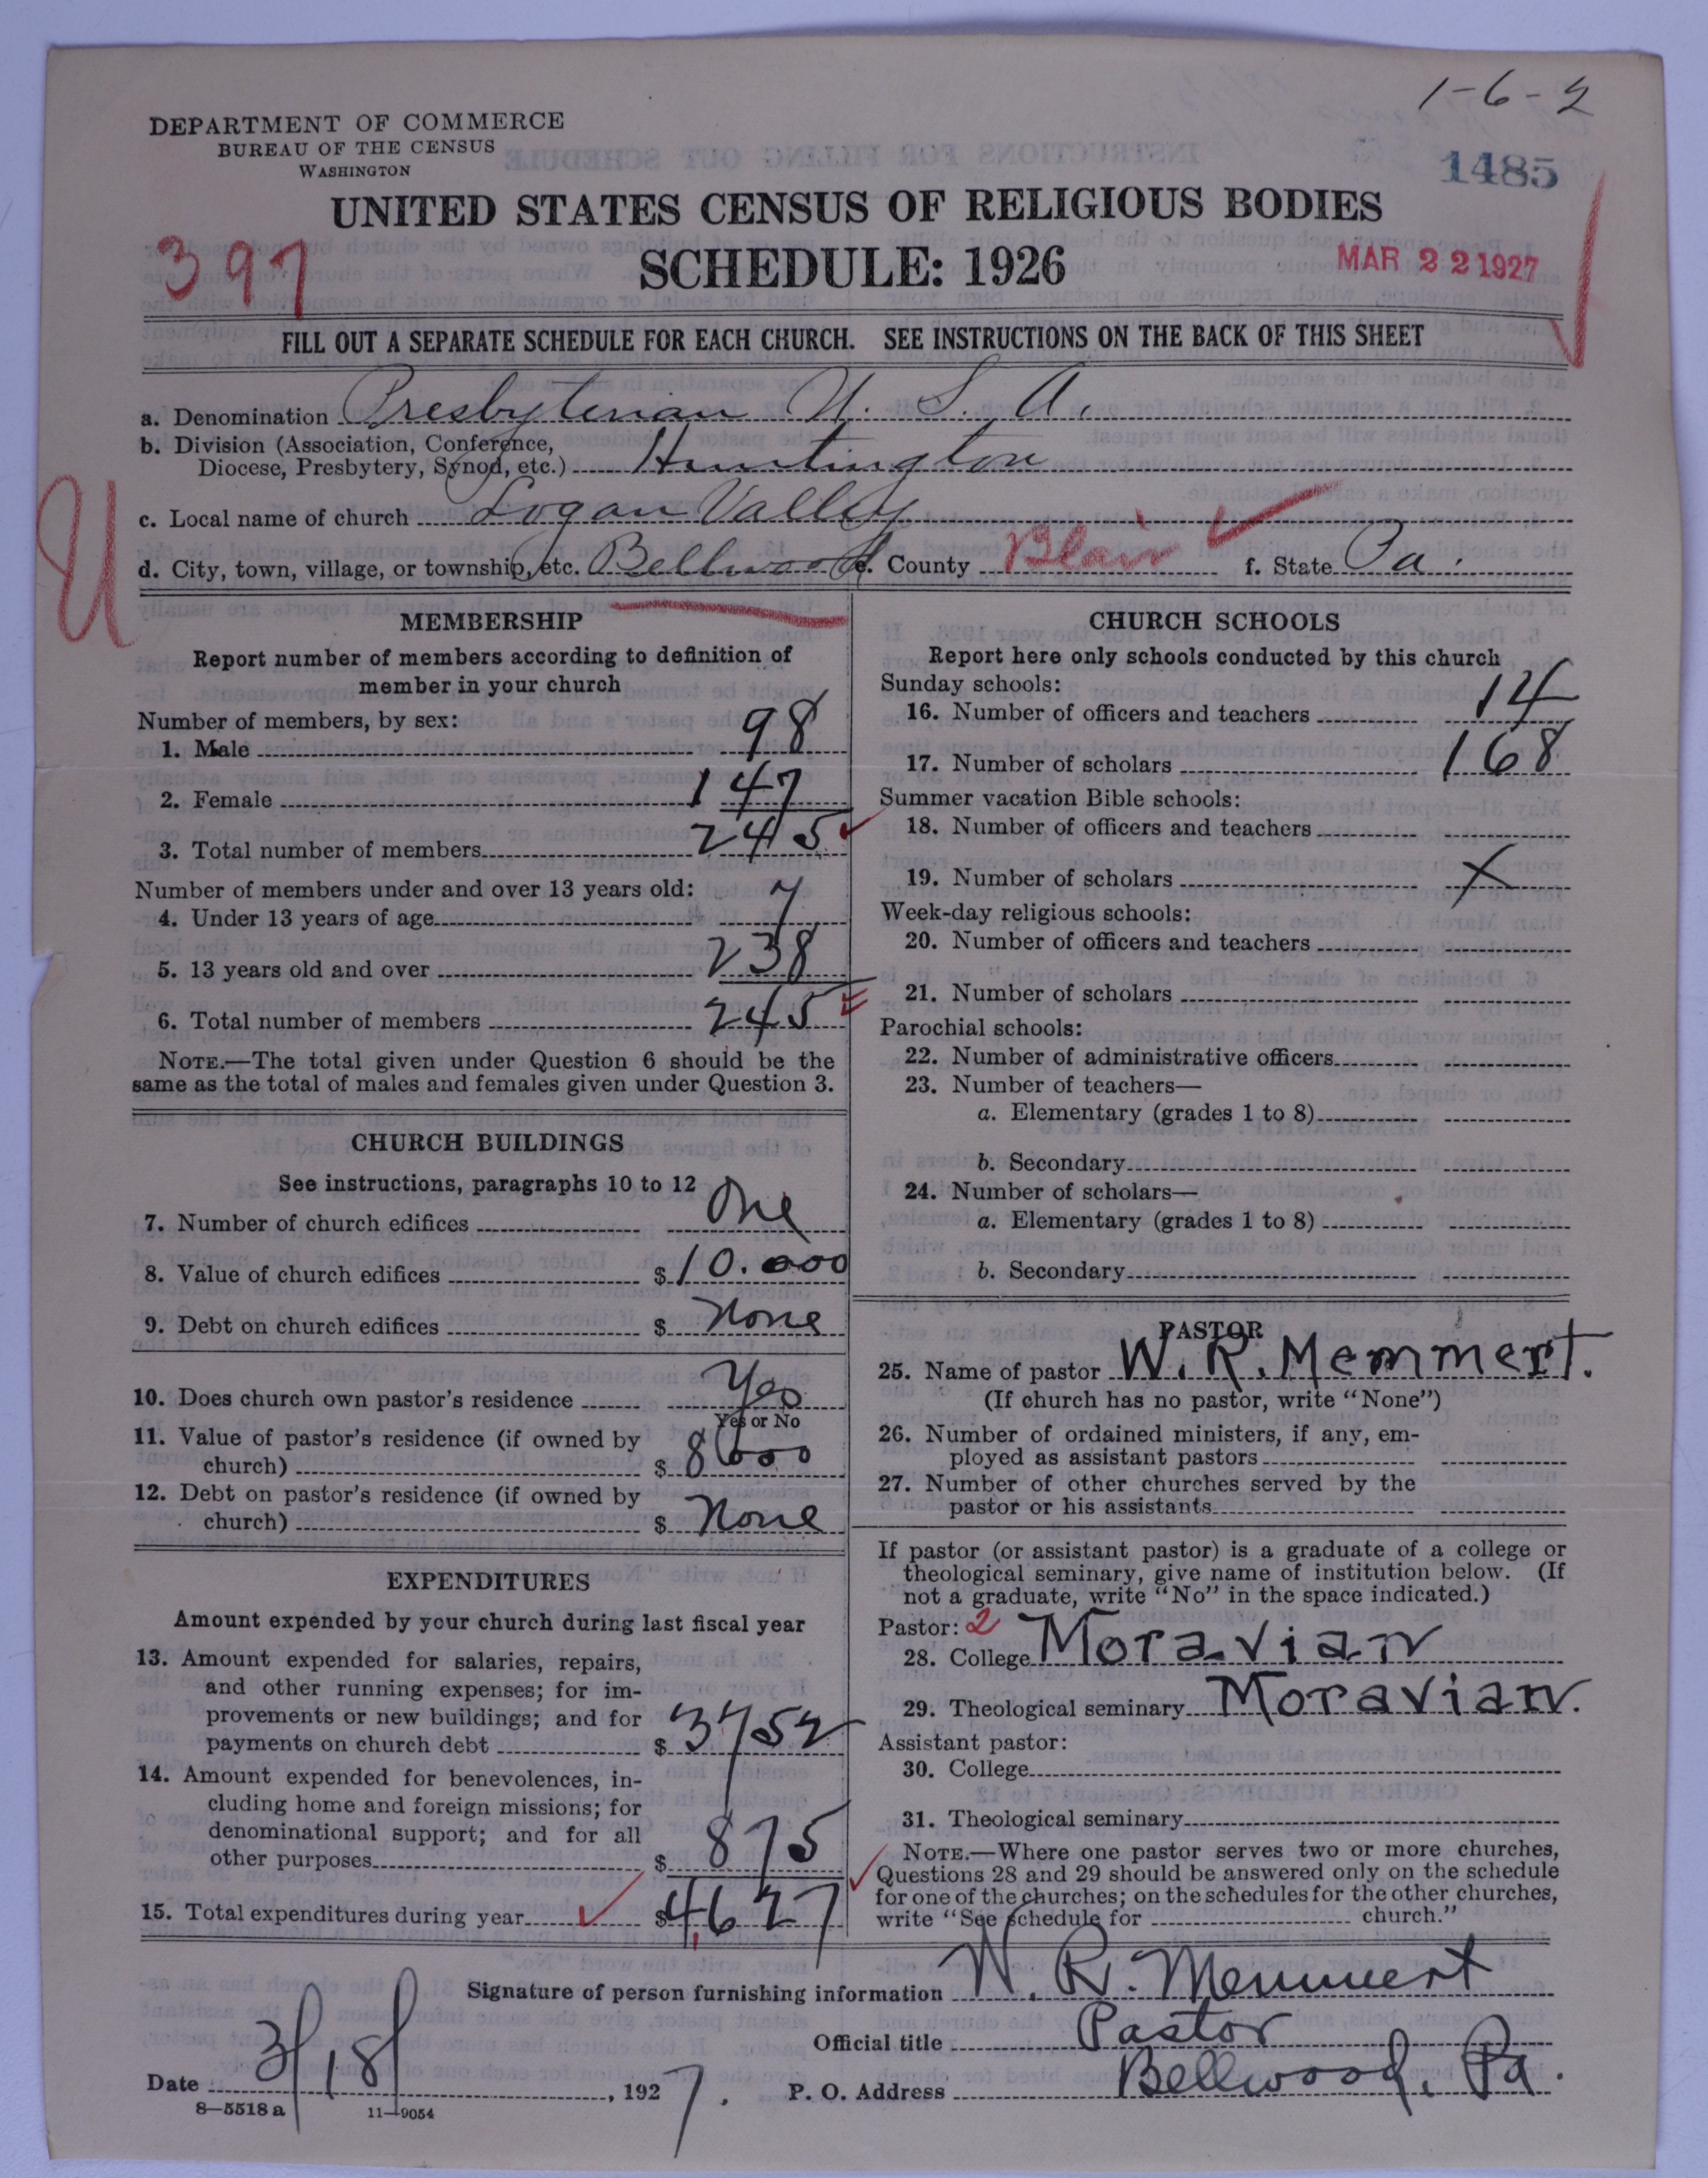 1-6-2
DEPARTMENT OF COMMERCE
BUREAU OF THE CENSUS
WASHINGTON
1485
UNITED STATES CENSUS OF RELIGIOUS BODIES
397
SCHEDULE: 1926
MAR 22 1927
FILL OUT A SEPARATE SCHEDULE FOR EACH CHURCH. SEE INSTRUCTIONS ON THE BACK OF THIS SHEET
a. Denomination Presbyterian U. S. A.
b. Division (Association, Conference,
Diocese, Presbytery, Synod, etc.) Huntington
U
c. Local name of church Logan Valley
d. City, town, village, or township, etc. Bellwood e. County Blair f. State Pa.
MEMBERSHIP
Report number of members according to definition of
member in your church
Number of members, by sex:
1. Male 98
2. Female 147
3. Total number of members 245
Number of members under and over 13 years old:
4. Under 13 years of age 7
5. 13 years old and over 238
6. Total number of members 245
NOTE.—The total given under Question 6 should be the
same as the total of males and females given under Question 3.
CHURCH BUILDINGS
See instructions, paragraphs 10 to 12
7. Number of church edifices One
8. Value of church edifices $10.000
9. Debt on church edifices $ None
10. Does church own pastor's residence Yes
Yes or No
11. Value of pastor's residence (if owned by
church) $ 8000
12. Debt on pastor's residence (if owned by
church) $ None
EXPENDITURES
Amount expended by your church during last fiscal year
13. Amount expended for salaries, repairs,
and other running expenses; for im-
provements or new buildings; and for
payments on church debt $ 3752
14. Amount expended for benevolences, in-
cluding home and foreign missions; for
denominational support; and for all
other purposes $ 875
15. Total expenditures during year $4,627
CHURCH SCHOOLS
Report here only schools conducted by this church
Sunday schools:
16. Number of officers and teachers 14
17. Number of scholars 168
Summer vacation Bible schools:
18. Number of officers and teachers
19. Number of scholars X
Week-day religious schools:
20. Number of officers and teachers
21. Number of scholars
Parochial schools:
22. Number of administrative officers
23. Number of teachers—
a. Elementary (grades 1 to 8)
b. Secondary
24. Number of scholars—
a. Elementary (grades 1 to 8)
b. Secondary
PASTOR
25. Name of pastor W. R. Memmert.
(If church has no pastor, write "None")
26. Number of ordained ministers, if any, em-
ployed as assistant pastors
27. Number of other churches served by the
pastor or his assistants
If pastor (or assistant pastor) is a graduate of a college or
theological seminary, give name of institution below. (If
not a graduate, write "No" in the space indicated.)
Pastor: 2
28. College Moravian
29. Theological seminary Moravian.
Assistant pastor:
30. College
31. Theological seminary
NOTE.—Where one pastor serves two or more churches,
Questions 28 and 29 should be answered only on the schedule
for one of the churches; on the schedules for the other churches,
write "See schedule for church."
Signature of person furnishing information W. R. Memmert
Official title Pastor
Date 3/18/, 1927. P. O. Address Bellwood, Pa.
8—5518 a 11—9054